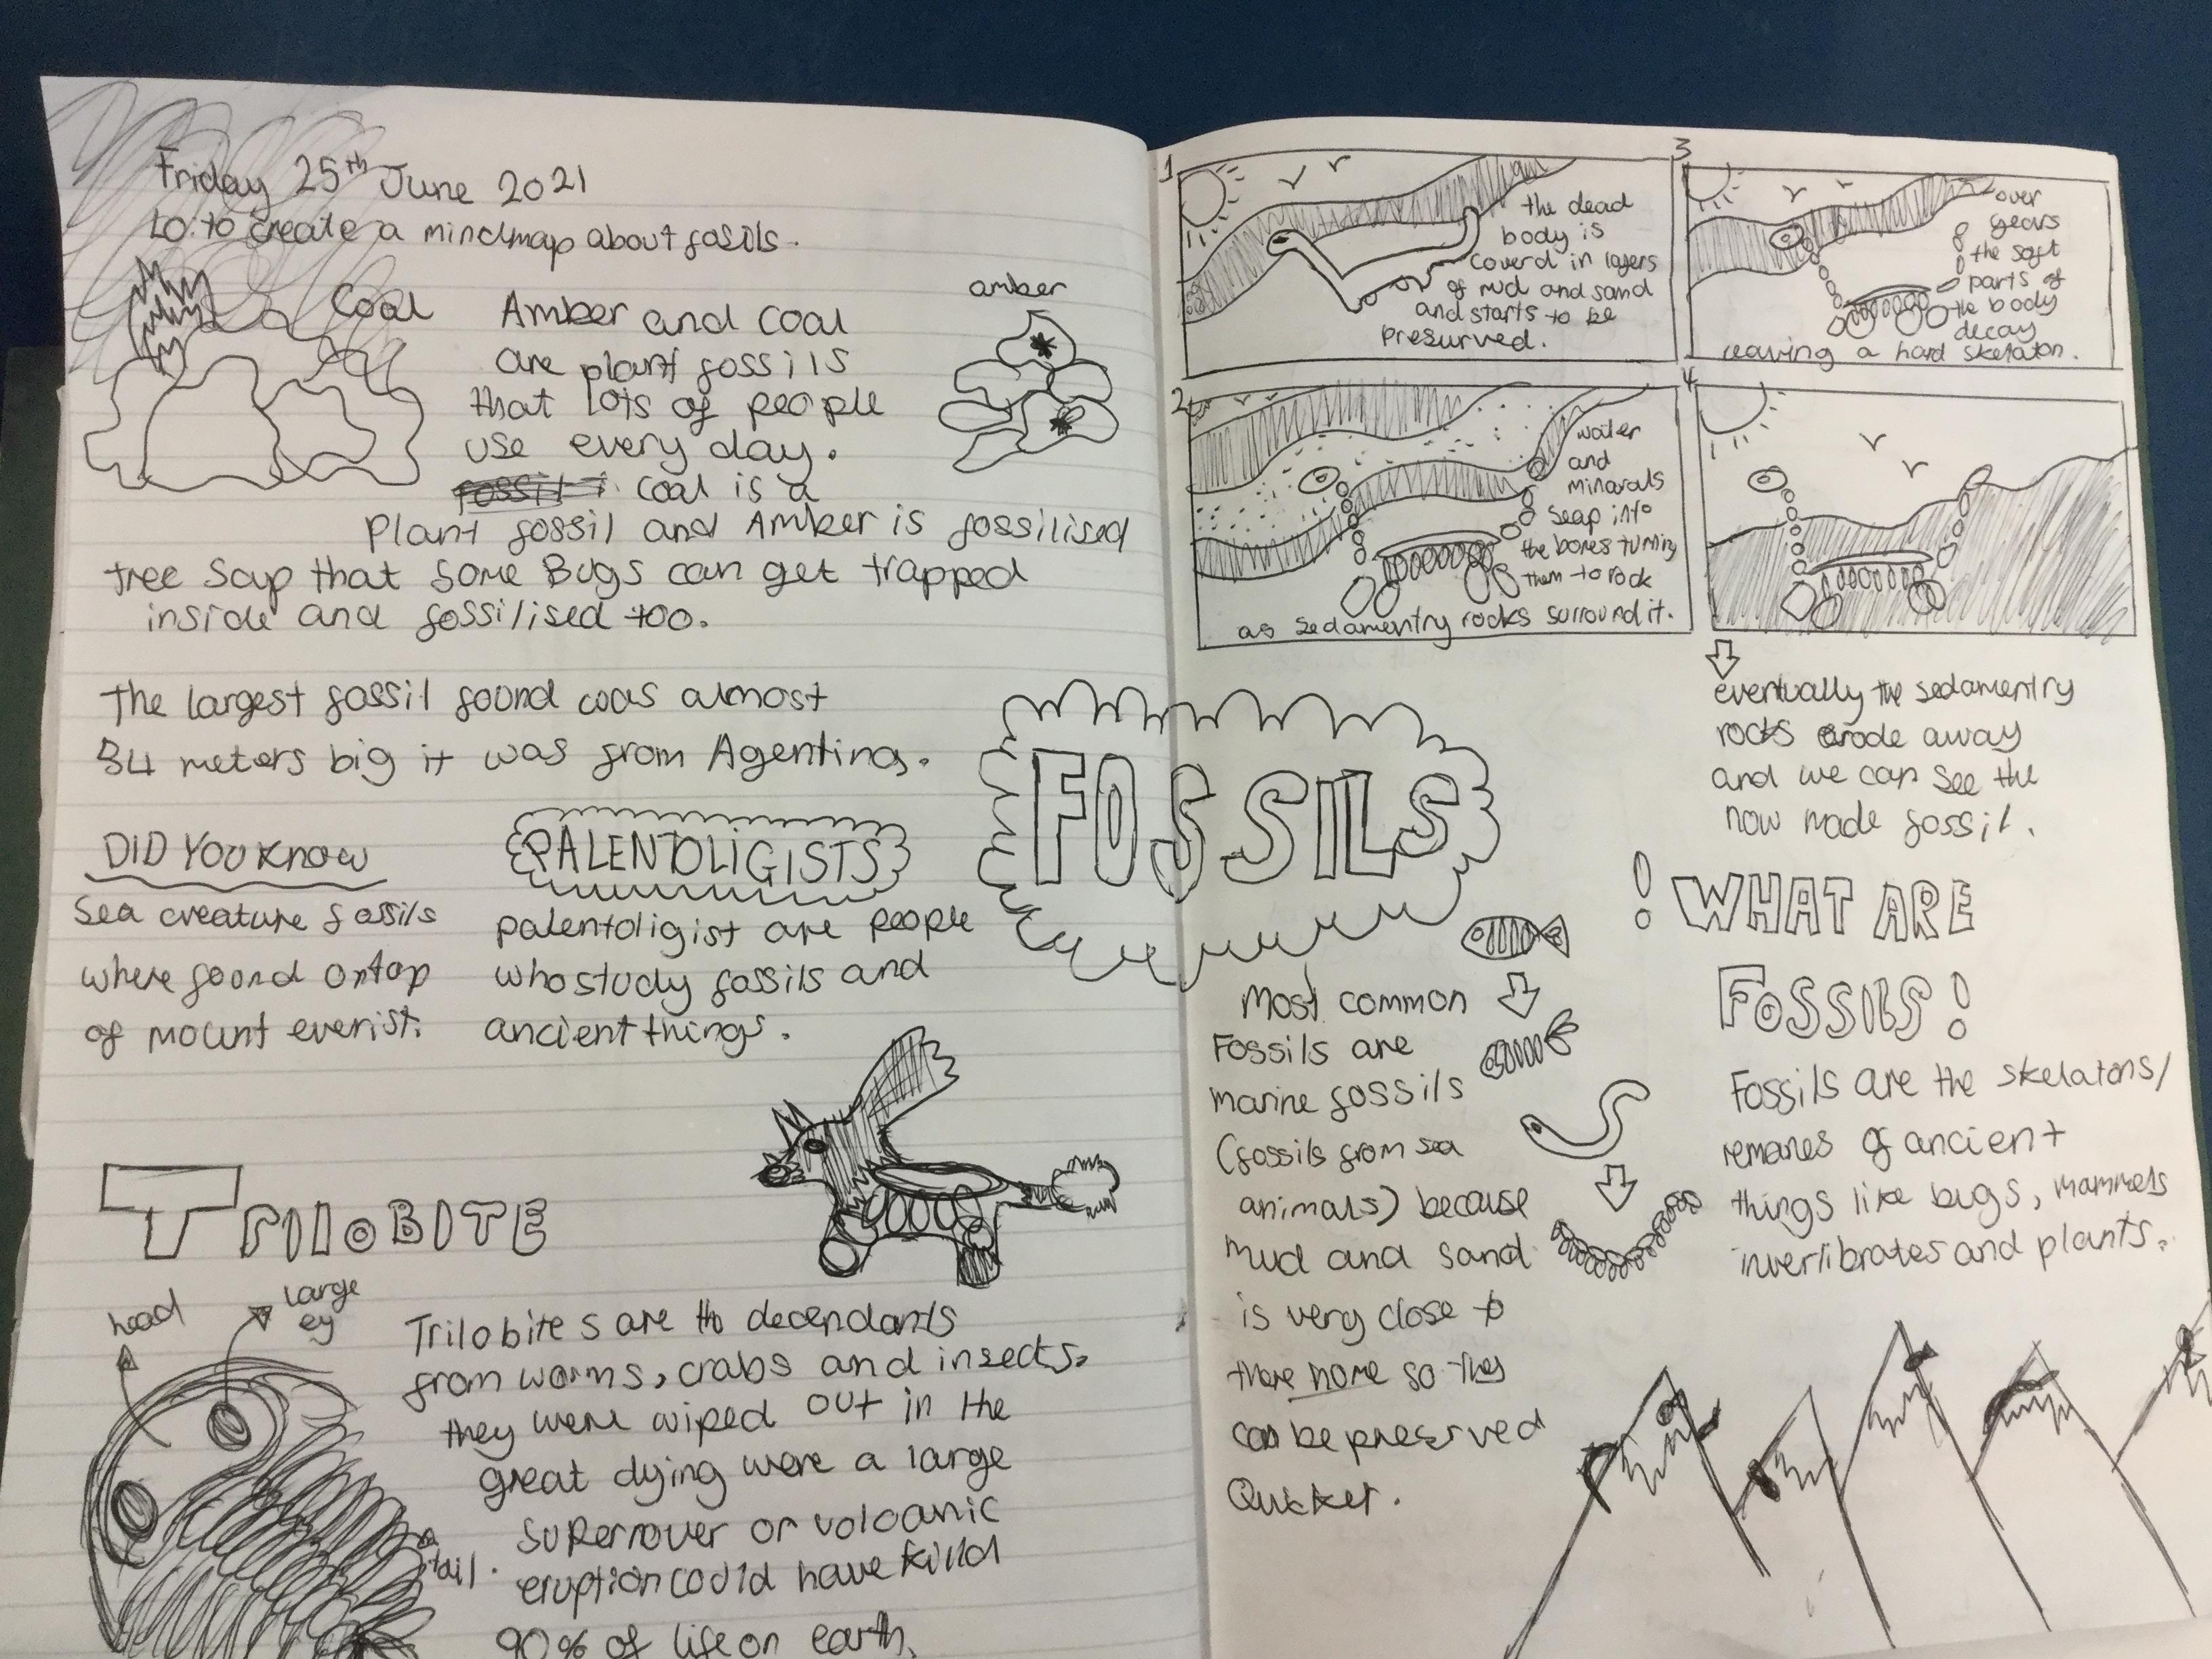 Friday 25th June 2021
LO: to create a mindmap about fosils.
Coal
Amber and coal
are plant fossils
that lots of people
use every day.
coal is a
Plant fossil and Amber is fossilised
tree Sap that some Bugs can get trapped
inside and fossilised too.
amber
The largest fossil found was almost
34 meters big it was from Agentina.
DID YOU KNOW
Sea creature fossils
where found ontop
of mount everist.
PALENTOLIGISTS
palentoligist are people
who study fossils and
ancient things.
TRILOBITE
head
large
ey
tail.
Trilobites are the decendants
from worms, crabs and insects.
they were wiped out in the
great dying were a large
supernover or volcanic
eruption could have killd
90% of life on earth.
FOSSILS
1
the dead
body is
coverd in layers
of mud and sand
and starts to be
presurved.
3
over
years
the soft
parts of
the body
decay
leaving a hard skelaton.
2
water
and
minarals
seap into
the bones turning
them to rock
as sedamentry rocks surround it.
4
eventually the sedamentry
rocks erode away
and we can see the
now made fossil.
! WHAT ARE
FOSSILS!
Fossils are the skelatons/
remanes of ancient
things like bugs, mammels
invertibrates and plants.
Most common
Fossils are
marine fossils
(fossils from sea
animals) because
mud and sand
is very close to
there home so they
can be preserved
Quicker.